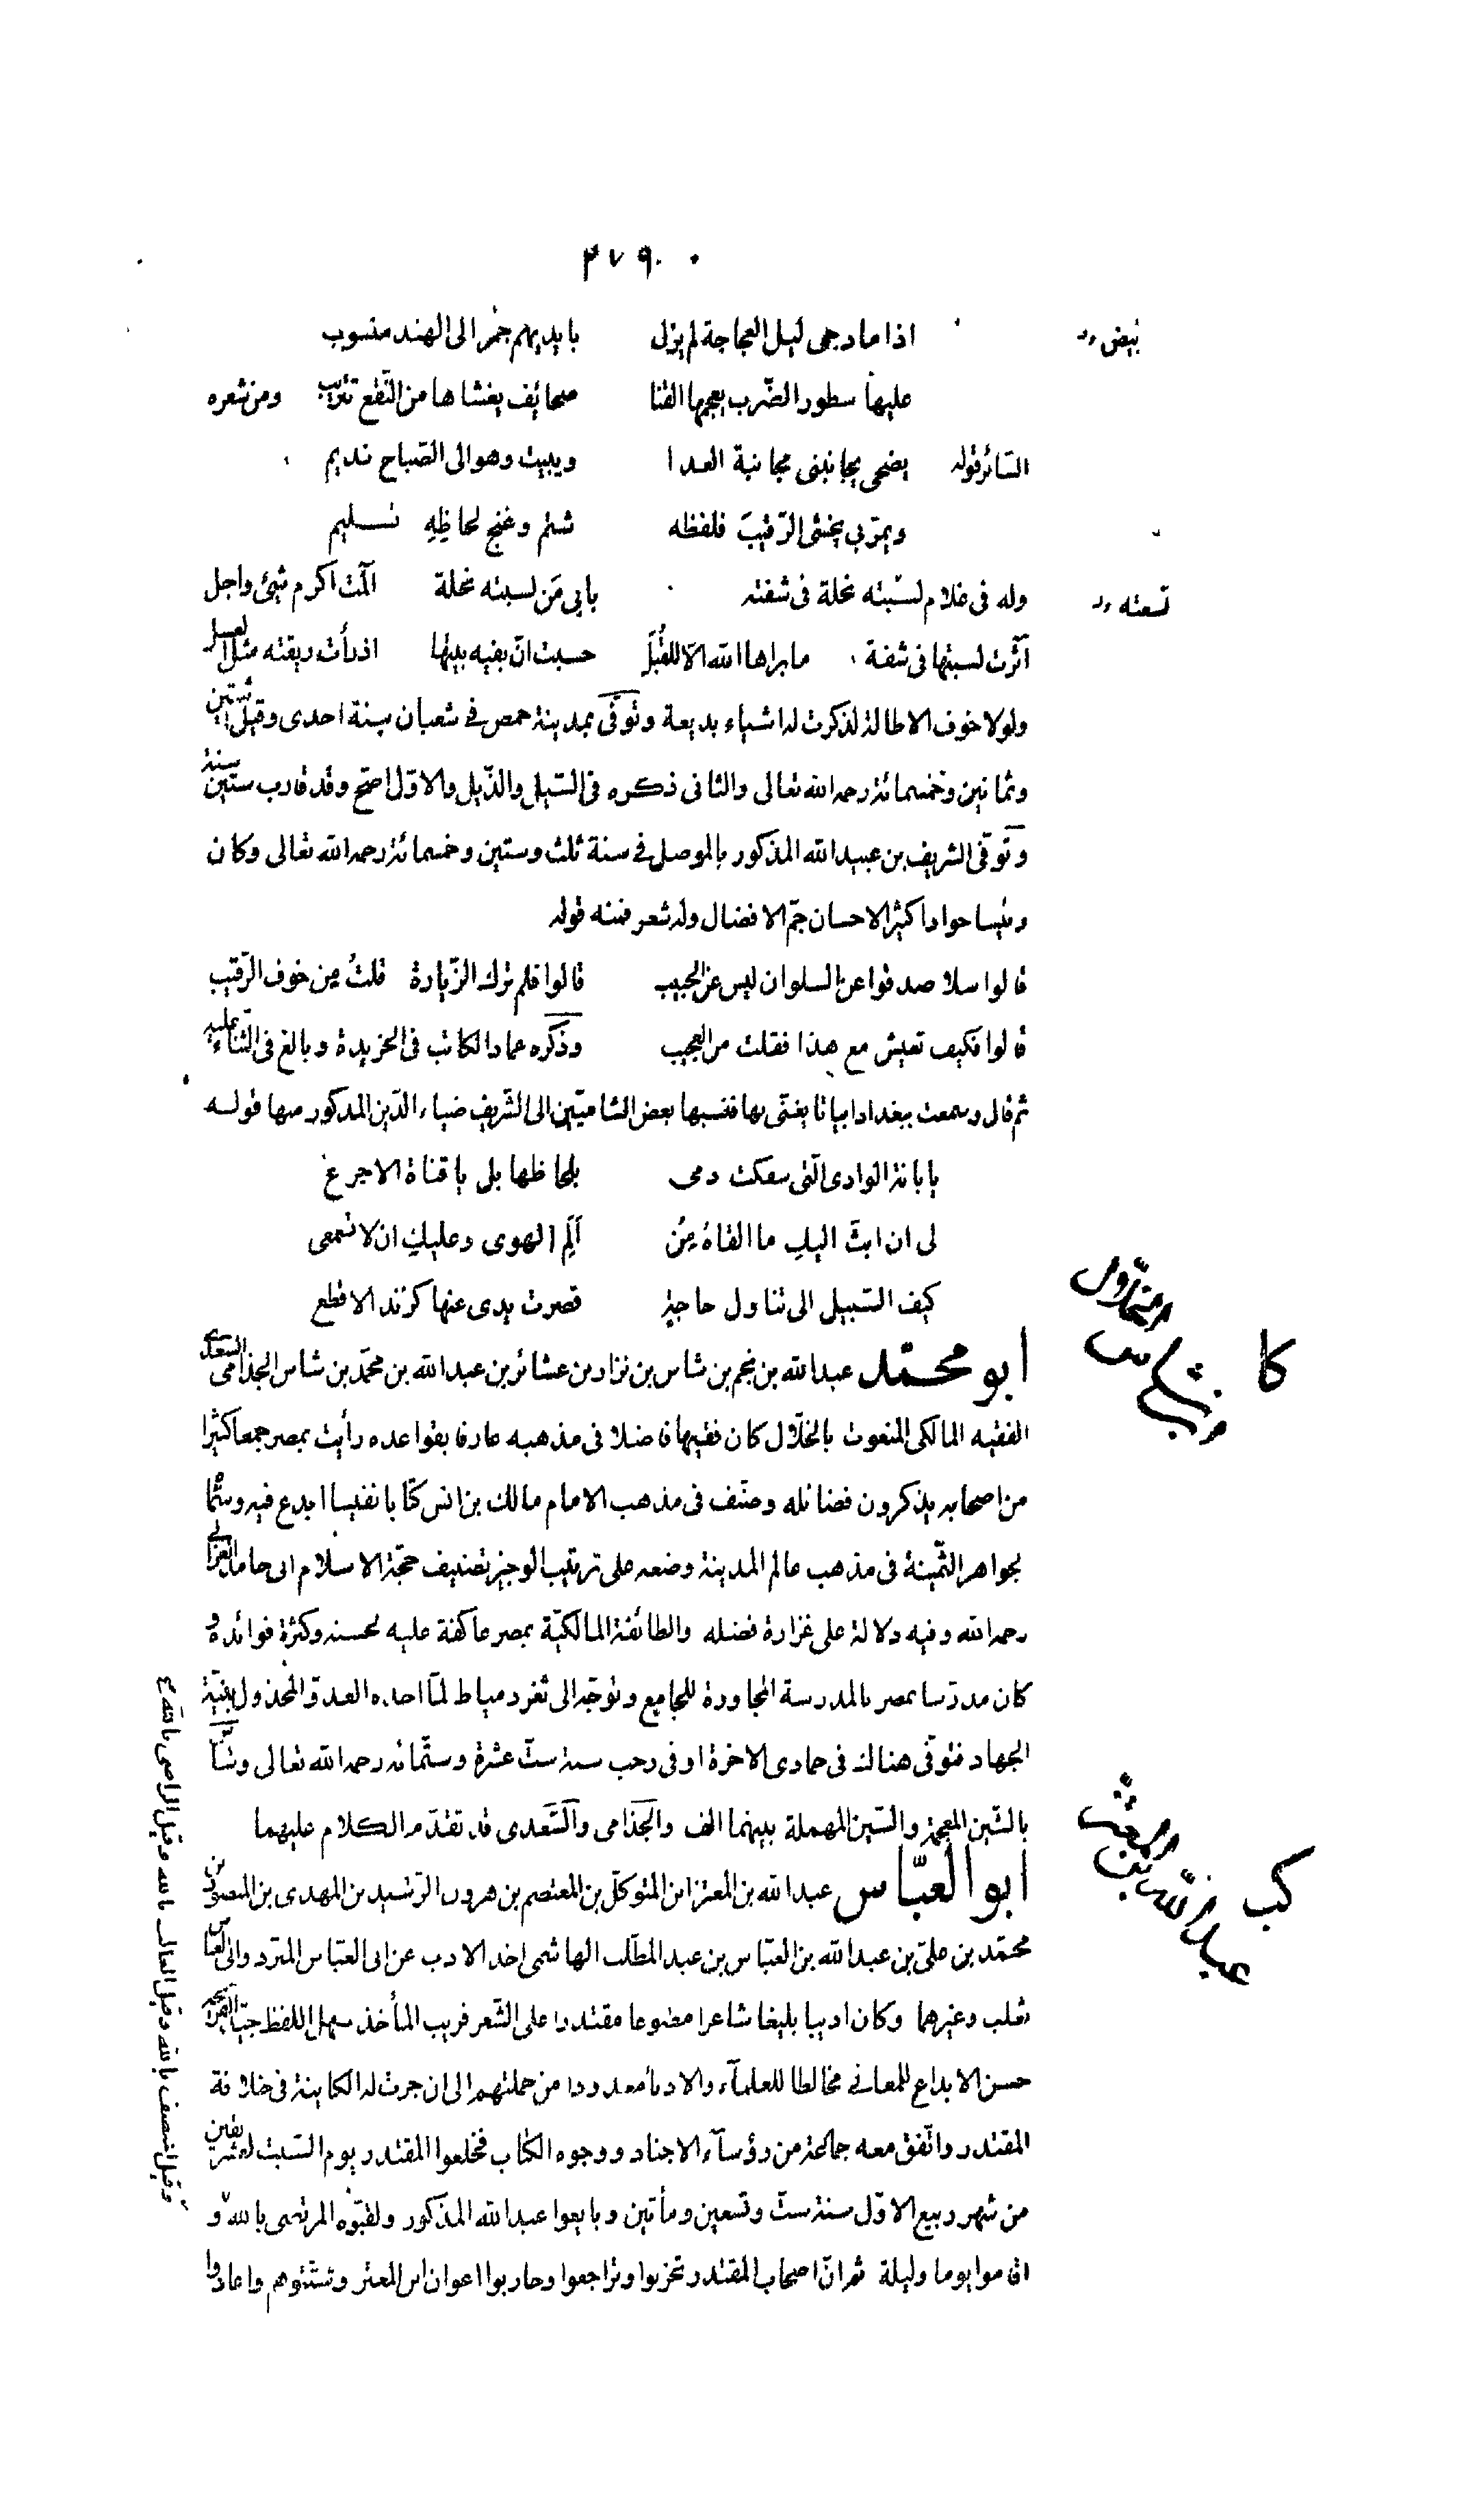 ٢٧٩
اذا ما دجى ليل العجاجة لم يزل بايديهم جمر الى الهند منسوب
عليها سطور الضّرب يعجمها القنا صحائف يغشاها من النّقع تتريب ومن شعره
السّائر قوله يضحى يجانبنى مجانبة العدا ويبيت وهو الى الصّباح نديم
ويمرّ بى يخشى الرّقيبَ فلفظه شتم وغنج لحاظِهِ تسليم
وله فى غلام لسبَتْه نحلة فى شفته بابى مَن لسبته نحلة آلمت اكرم شيئ واجل
اثّرت لسبتها فى شفة ما براها الله الّا للقُبَلْ حسبت انّ بفيه بيتها اذ رأت ريقته مثل العسل
ولولا خوف الاطالة لذكرت له اشياء بديعة وتوفّى بمدينة حمص فى شعبان سنة احدى وقيل اثنتين
وثمانين وخمسمائة رحمه الله تعالى والثانى ذكره فى السّيل والذّيل والاوّل اصحّ وقد قارب ستّين سنة
وتوفّى الشريف بن عبيد الله المذكور بالموصل فى سنة ثلث وستين وخمسمائة رحمه الله تعالى وكان
رئيسا جوادا كثير الاحسان جمّ الافضال وله شعر فمنه قوله
قالوا سلا صدقوا عن السلوان ليس عن الحبيب قالوا فلم ترك الزّيارة قلتُ مِن خوف الرّقيب
قالوا فكيف تعيش مع هذا فقلت من العجيب وذكره عماد الكاتب فى الخريدة وبالغ فى الثناء عليه
ثم قال وسمعت ببغداد ابياتا يغنّى بها فنسبها بعض الشاميّين الى الشّريف ضياء الدّين المذكور منها قوله
يا بانة الوادى الّتى سفكت دمى بلحاظها بلى يا قناة الاجرع
لى ان ابثّ اليكِ ما القاهُ مِن اَلَمِ الهوى وعليكِ ان لا تسمعى
كيف السّبيل الى تناول حاجةٍ قصرت يدى عنها كزند الاقطع
أبو محمّد عبد الله بن نجم بن شاس بن نزار بن عشائر بن عبد الله بن محمّد بن شاس الجذامى السّعدى
الفقيه المالكى المنعوت بالخلّال كان فقيها فاضلا فى مذهبه عارفا بقواعده رأيت بمصر جمعا كثيرا
من اصحابه يذكرون فضائله وصنّف فى مذهب الامام مالك بن انس كتابا نفيسا ابدع فيه وسمّاه
الجواهر الثّمينة فى مذهب عالم المدينة وضعه على ترتيب الوجيز تصنيف حجّة الاسلام ابى حامد الغزالى
رحمه الله وفيه دلالة على غزارة فضله والطائفة المالكيّة بمصر عاكفة عليه لحسنه وكثرة فوائده و
كان مدرّسا بمصر بالمدرسة المجاورة للجامع وتوجّه الى ثغر دمياط لمّا اخذه العدوّ المخذول بنيّة
الجهاد فتوفّى هنالك فى جمادى الاخرة او فى رجب سنة ستّ عشرة وستّمائة رحمه الله تعالى وشاس
بالشّين المعجمة والسّين المهملة بينهما الف والجذامى والسّعدى قد تقدّم الكلام عليهما
أبو العبّاس عبد الله بن المعتز ابن المتوكّل بن المعتصم بن هرون الرّشيد بن المهدى بن المنصور بن
محمّد بن علىّ بن عبد الله بن العبّاس بن عبد المطّلب الهاشمى اخذ الادب عن ابى العبّاس المبّرد وابى العباس
ثعلب وغيرهما وكان اديبا بليغا شاعرا مطبوعا مقتدرا على الشّعر قريب المأخذ سهل اللفظ جيّد القريحة
حسن الابداع للمعانى مخالطا للعلمآء والادبآء معدودا من جملتهم الى ان جرت له الكاينة فى خلافة
المقتدر واتّفق معه جماعة من رؤسآء الاجناد ووجوه الكتاب فخلعوا المقتدر يوم السّبت لعشر بقين
من شهر ربيع الاوّل سنة ستّ وتسعين ومأتين وبايعوا عبد الله المذكور ولقبّوه المرتضى بالله و
اقاموا يوما وليلة ثم انّ اصحاب المقتدر تحزبوا وتراجعوا وحاربوا اعوان ابن المعتز وشتّتوهم واعادوا
وقيل المنصف بالله وقيل الغالب بالله وقيل الراضى بالله
كا
كب
عبد الله بن المعتز